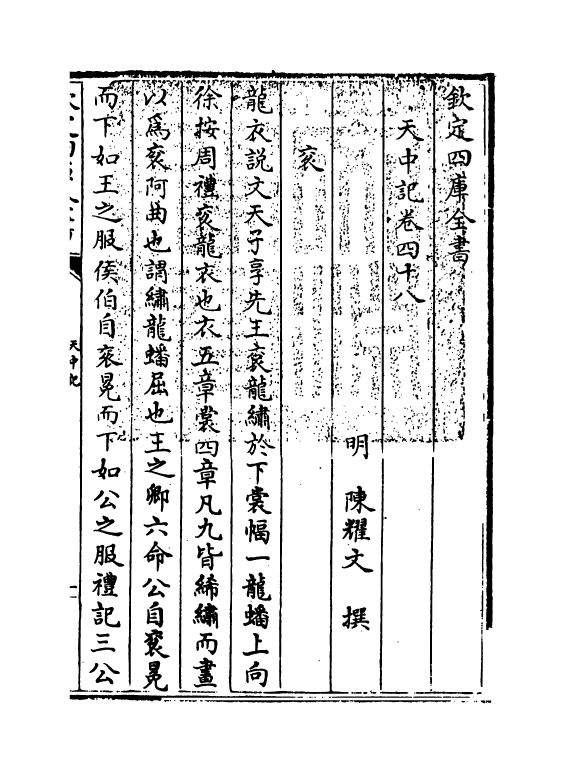 欽定四庫全書
天中記卷四十八
明 陳耀文 撰
衮
龍衣説文天子享先王衮龍繡於下裳幅一龍蟠上向
徐按周禮衮龍衣也衣五章裳四章凡九皆絺繡而畫
以為衮阿曲也謂繡龍蟠屈也王之卿六命公自衮冕
而下如王之服侯伯自衮冕而下如公之服禮記三公
天中記